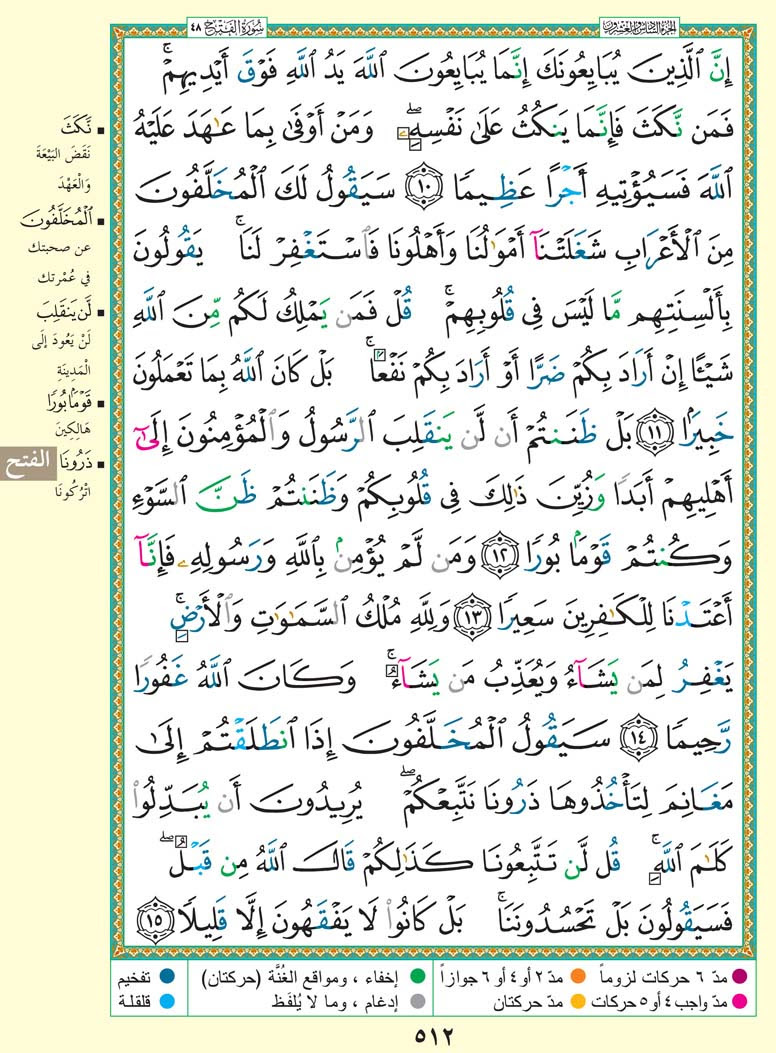 الجزء السادس والعشرون
سورة الفتح ٤٨
إِنَّ ٱلَّذِينَ يُبَايِعُونَكَ إِنَّمَا يُبَايِعُونَ ٱللَّهَ يَدُ ٱللَّهِ فَوْقَ أَيْدِيهِمْۚ
فَمَن نَّكَثَ فَإِنَّمَا يَنكُثُ عَلَىٰ نَفْسِهِۦۖ وَمَنْ أَوْفَىٰ بِمَا عَٰهَدَ عَلَيْهُ
ٱللَّهَ فَسَيُؤْتِيهِ أَجْرًا عَظِيمًا ١٠ سَيَقُولُ لَكَ ٱلْمُخَلَّفُونَ
مِنَ ٱلْأَعْرَابِ شَغَلَتْنَآ أَمْوَٰلُنَا وَأَهْلُونَا فَٱسْتَغْفِرْ لَنَاۚ يَقُولُونَ
بِأَلْسِنَتِهِم مَّا لَيْسَ فِى قُلُوبِهِمْۚ قُلْ فَمَن يَمْلِكُ لَكُم مِّنَ ٱللَّهِ
شَيْـًٔا إِنْ أَرَادَ بِكُمْ ضَرًّا أَوْ أَرَادَ بِكُمْ نَفْعًۢاۚ بَلْ كَانَ ٱللَّهُ بِمَا تَعْمَلُونَ
خَبِيرًۢا ١١ بَلْ ظَنَنتُمْ أَن لَّن يَنقَلِبَ ٱلرَّسُولُ وَٱلْمُؤْمِنُونَ إِلَىٰٓ
أَهْلِيهِمْ أَبَدًا وَزُيِّنَ ذَٰلِكَ فِى قُلُوبِكُمْ وَظَنَنتُمْ ظَنَّ ٱلسَّوْءِ
وَكُنتُمْ قَوْمًۢا بُورًا ١٢ وَمَن لَّمْ يُؤْمِنۢ بِٱللَّهِ وَرَسُولِهِۦ فَإِنَّآ
أَعْتَدْنَا لِلْكَٰفِرِينَ سَعِيرًا ١٣ وَلِلَّهِ مُلْكُ ٱلسَّمَٰوَٰتِ وَٱلْأَرْضِۚ
يَغْفِرُ لِمَن يَشَآءُ وَيُعَذِّبُ مَن يَشَآءُۚ وَكَانَ ٱللَّهُ غَفُورًا
رَّحِيمًا ١٤ سَيَقُولُ ٱلْمُخَلَّفُونَ إِذَا ٱنطَلَقْتُمْ إِلَىٰ
مَغَانِمَ لِتَأْخُذُوهَا ذَرُونَا نَتَّبِعْكُمْۖ يُرِيدُونَ أَن يُبَدِّلُوا۟
كَلَٰمَ ٱللَّهِۚ قُل لَّن تَتَّبِعُونَا كَذَٰلِكُمْ قَالَ ٱللَّهُ مِن قَبْلُۖ
فَسَيَقُولُونَ بَلْ تَحْسُدُونَنَاۚ بَلْ كَانُوا۟ لَا يَفْقَهُونَ إِلَّا قَلِيلًا ١٥
▪ نَّكَثَ
نَقَضَ البَيْعَةَ
وَالْعَهْدَ
▪ ٱلْمُخَلَّفُونَ
عن صحبتك
في عُمْرتك
▪ لَّن يَنقَلِبَ
لَنْ يَعُودَ إلَى
الْمَدِينَةِ
▪ قَوْمًۢا بُورًا
هَالِكِينَ
▪ ذَرُونَا
اتْرُكُونَا
الفتح
مدّ ٦ حركات لزوماً
مدّ ٢ أو ٤ أو ٦ جوازاً
إخفاء ، ومواقع الغُنَّة (حركتان)
تفخيم
مدّ واجب ٤ أو ٥ حركات
مدّ حركتان
إدغام ، وما لا يُلفَظ
قلقلة
٥١٢